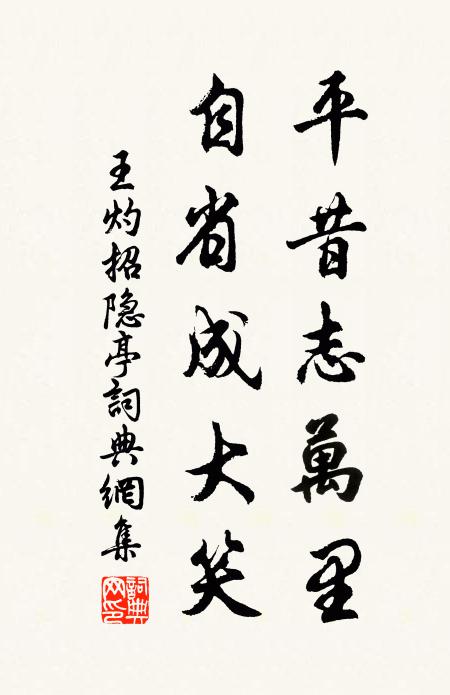 平昔志萬里
自省成大笑
王灼招隐亭詞典網集
詞典網印